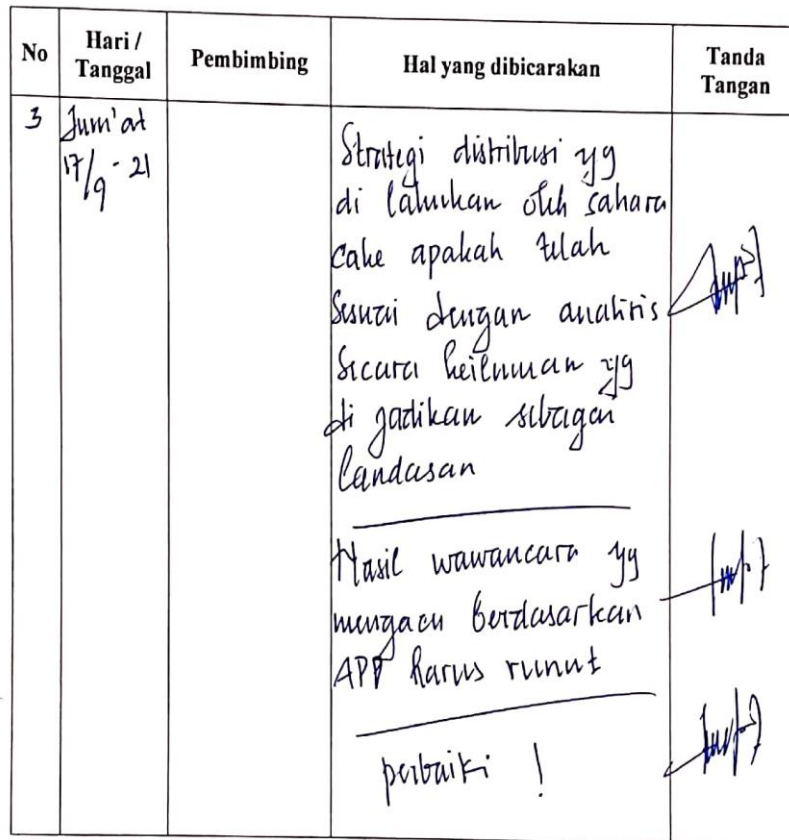 No
Hari /
Tanggal
Pembimbing
Hal yang dibicarakan
Tanda
Tangan
3
Jum'at
17/9 - 21
Strategi distribusi yg
di lakukan oleh sahara
cake apakah telah
Sesuai dengan analisis
Secara keilmuan yg
di jadikan sebagai
landasan
Hasil wawancara yg
mengacu berdasarkan
APP harus runut
perbaiki !